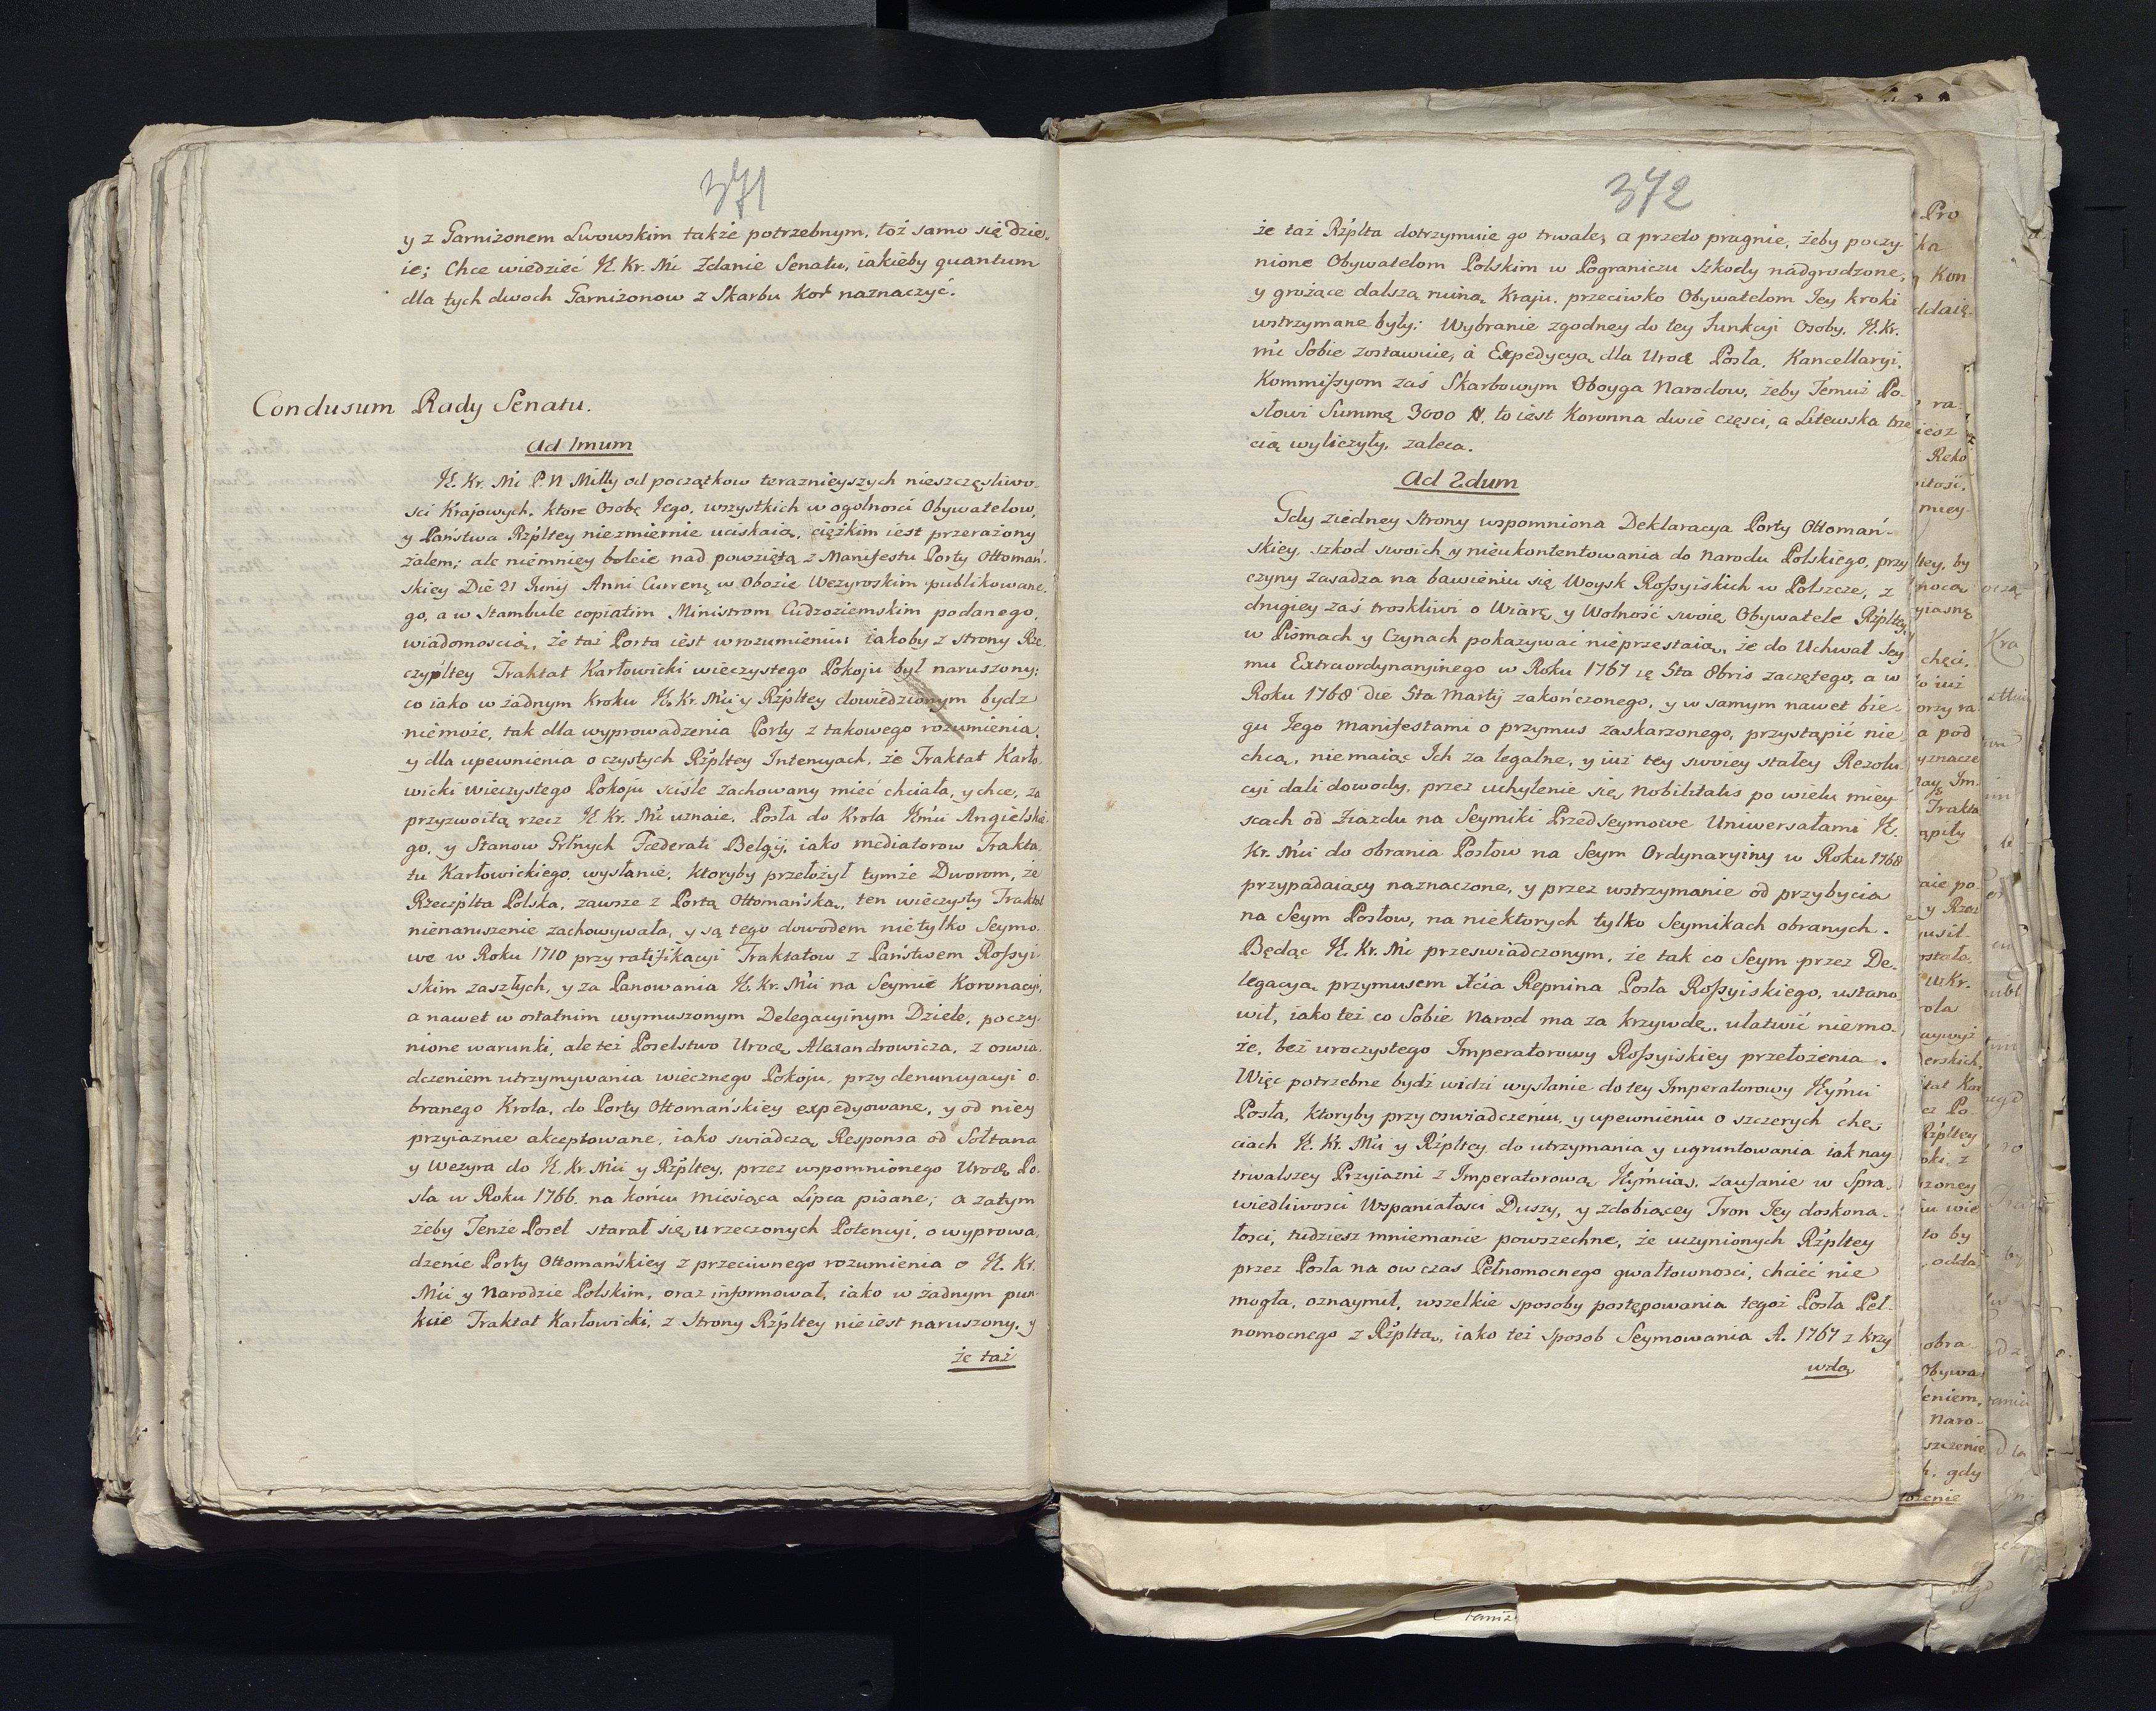 371
y z Garnizonem Lwowskim także potrzebnym, toż samo się dzie„
ie; Chce wiedzieć JK. Kr. Mć Zdanie Senatu, iakieby quantum
dla tych dwoch Garnizonow z Skarbu Kor naznaczyć.
Conclusum Rady Senatu.
Ad 1mum
JK. Kr. Mć P. N Miłły od początkow teraznieyszych nieszczęsliwo-
sci Krajowych, ktore Osobę Jego, wszystkich w ogolnosci Obywatelow,
y Państwa Rżpltey niezmiernie uciskaią, ciężkim iest przerażony
żalem; ale niemniey boleie nad powziętą z Manifestu Porty Ottomań-
skiey Die 21 Junij Anni Curren̄ w Obozie Wezyroskim publikowane„
go, a w Stambule copiatim Ministrom Cudzoziemskim podanego,
wiadomoscią, że taż Porta iest w rozumieniu iakoby z strony Rze„
czypltey Traktat Karłowicki wieczystego Pokoju był naruszony;
co iako w żadnym Kroku JK. Kr. Mći y Rżpltey dowiedzionym bydz
niemoże, tak dla wyprowadzenia Porty z takowego rozumienia,
y dla upewnienia o czystych Rżpltey Intencyach, że Traktat Karło
wicki wieczystego Pokoju sciśle zachowany mieć chciała, y chce, za
przyzwoitą rzecz JK. Kr. Mć uznaie, Posła do Krola Jmći Angielskie„
go, y Stanow Grlnych Fœderati Belgij, iako mediatorow Trakta„
tu Karłowickiego, wysłanie, ktoryby przełożył tymże Dworom, że
Rzeczplta Polska, zawsze z Portą Ottomańską, ten wieczysty Traktat
nienaruszenie zachowywała, y są tego dowodem nietylko Seymo„
we w Roku 1710 przy ratifikacyi Traktatow z Państwem Rossyi„
skim zaszłych, y za Panowania JK. Kr. Mći na Seymie Koronacyi„
a nawet w ostatnim wymuszonym Delegacyinym Dziele, poczy„
nione warunki, ale też Poselstwo Urodę Alexandrowicza, z oswia„
dczeniem utrzymywania wiecznego Pokoju, przy denuncyacyi o„
branego Krola, do Porty Ottomańskiey expedyowane, y od niey
przyiaznie akceptowane, iako swiadczą Responsa od Sołtana
y Wezyra do JK. Kr. Mći y Rżpltey, przez wspomnionego Urodę Po„
sła w Roku 1766. na końcu miesiąca Lipca pisane; a zatym
żeby Tenże Poseł starał się u rzeczonych Potencyi, o wyprowa„
dzenie Porty Ottomańskiey z przeciwnego rozumienia o JK. Kr.
Mći y Narodzie Polskim, oraz informował, iako w żadnym pun„
kcie Traktat Karłowicki, z Strony Rżpltey nieiest naruszony, y
że taż
372
że taż Rżplta dotrzymuie go trwale, a przeto pragnie, żeby poczy„
nione Obywatelom Polskim w Pograniczu Szkody nadgrodzone,
y grożące dalszą ruiną Kraju, przeciwko Obywatelom Jey kroki
wstrzymane były; Wybranie zgodney do tey Funkcyi Osoby, JK. Kr.
Mć Sobie zostawuie, à Expedycyą dla Urodę Posła, Kancellaryi,
Kommissyom zaś Skarbowym Oboyga Narodow, żeby Temuż Po-
słowi Summę 3000 #, to iest Koronna dwie częsci, a Litewska trze
cią wyliczyły, zaleca.
Ad 2dum
Gdy ziedney Strony wspomniona Deklaracya Porty Ottomań-
skiey, szkod swoich y nieukontentowania do Narodu Polskiego, przy
czyny zasadza na bawieniu się Woysk Rossyiskich w Polszcze, z
drugiey zaś troskliwi o Wiarę y Wolność swoię Obywatele Rżpltey,
w Pismach y Czynach pokazywać nieprzestaią, że do Uchwał Sey
mu Extraordynaryinego w Roku 1767 5ta 8bris zaczętego, a w
Roku 1768 die 5ta Martij zakończonego, y w samym nawet bie-
gu Jego Manifestami o przymus zaskarzonego, przystąpić nie
chcą, niemaiąc Ich za legalne, y iuż tey swoiey stałey Rezolu„
cyi dali dowody, przez uchylenie się Nobilitatis po wielu miey„
scach od Ziazdu na Seymiki Przed Seymowe Uniwersałami JK.
Kr. Mći do obrania Posłow na Seym Ordynaryiny w Roku 1768
przypadaiący naznaczone, y przez wstrzymanie od przybycia
na Seym Posłow, na niektorych tylko Seymikach obranych.
Będąc JK. Kr. Mć przeswiadczonym, że tak co Seym przez De„
legacyą przymusem Xcia Repnina Posła Rossyiskiego, ustano„
wił, iako też co Sobie Narod ma za krzywdę, ułatwić niemo„
że, bez uroczystego Imperatorowy Rossyiskiey przełożenia.
Więc potrzebne bydź widzi wysłanie do tey Imperatorowy Jeymći
Posła, ktoryby przy oswiadczeniu, y upewnieniu o szczerych chę„
ciach JK. Kr. Mći y Rżpltey, do utrzymania y ugruntowania iak nay
trwalszey Przyiazni z Imperatorową Jeymcią, zaufanie w Spra„
wiedliwosci Wspaniałosci Duszy, y zdobiącey Tron Jey doskona-
łosci, tudziesz mniemanie powszechne, że uczynionych Rżpltey
przez Posła na ow czas Pełnomocnego gwałtownosci, chcieć nie
mogła, oznaymił, wszelkie sposoby postępowania tegoż Posła Peł-
nomocnego z Rżpltą, iako też sposob Seymowania A. 1767 z krzy
wdą